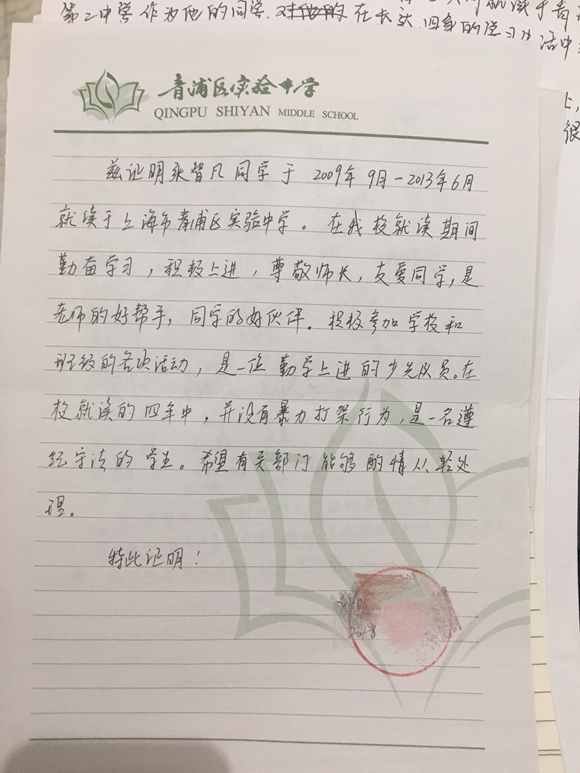 第二中学作为他的同学.对他的在长达四年的学习生活中
上,
很
青浦区实验中学
QINGPU SHIYAN MIDDLE SCHOOL
兹证明张智凡同学于 2009年9月-2013年6月
就读于上海市青浦区实验中学。在我校就读期间
勤奋学习,积极上进,尊敬师长,友爱同学,是
老师的好帮手,同学的好伙伴。积极参加学校和
班级的各项活动,是一位勤学上进的少先队员。在
校就读的四年中,并没有暴力打架行为,是一名遵
纪守法的学生。希望有关部门能够酌情从轻处
理。
特此证明!
2018